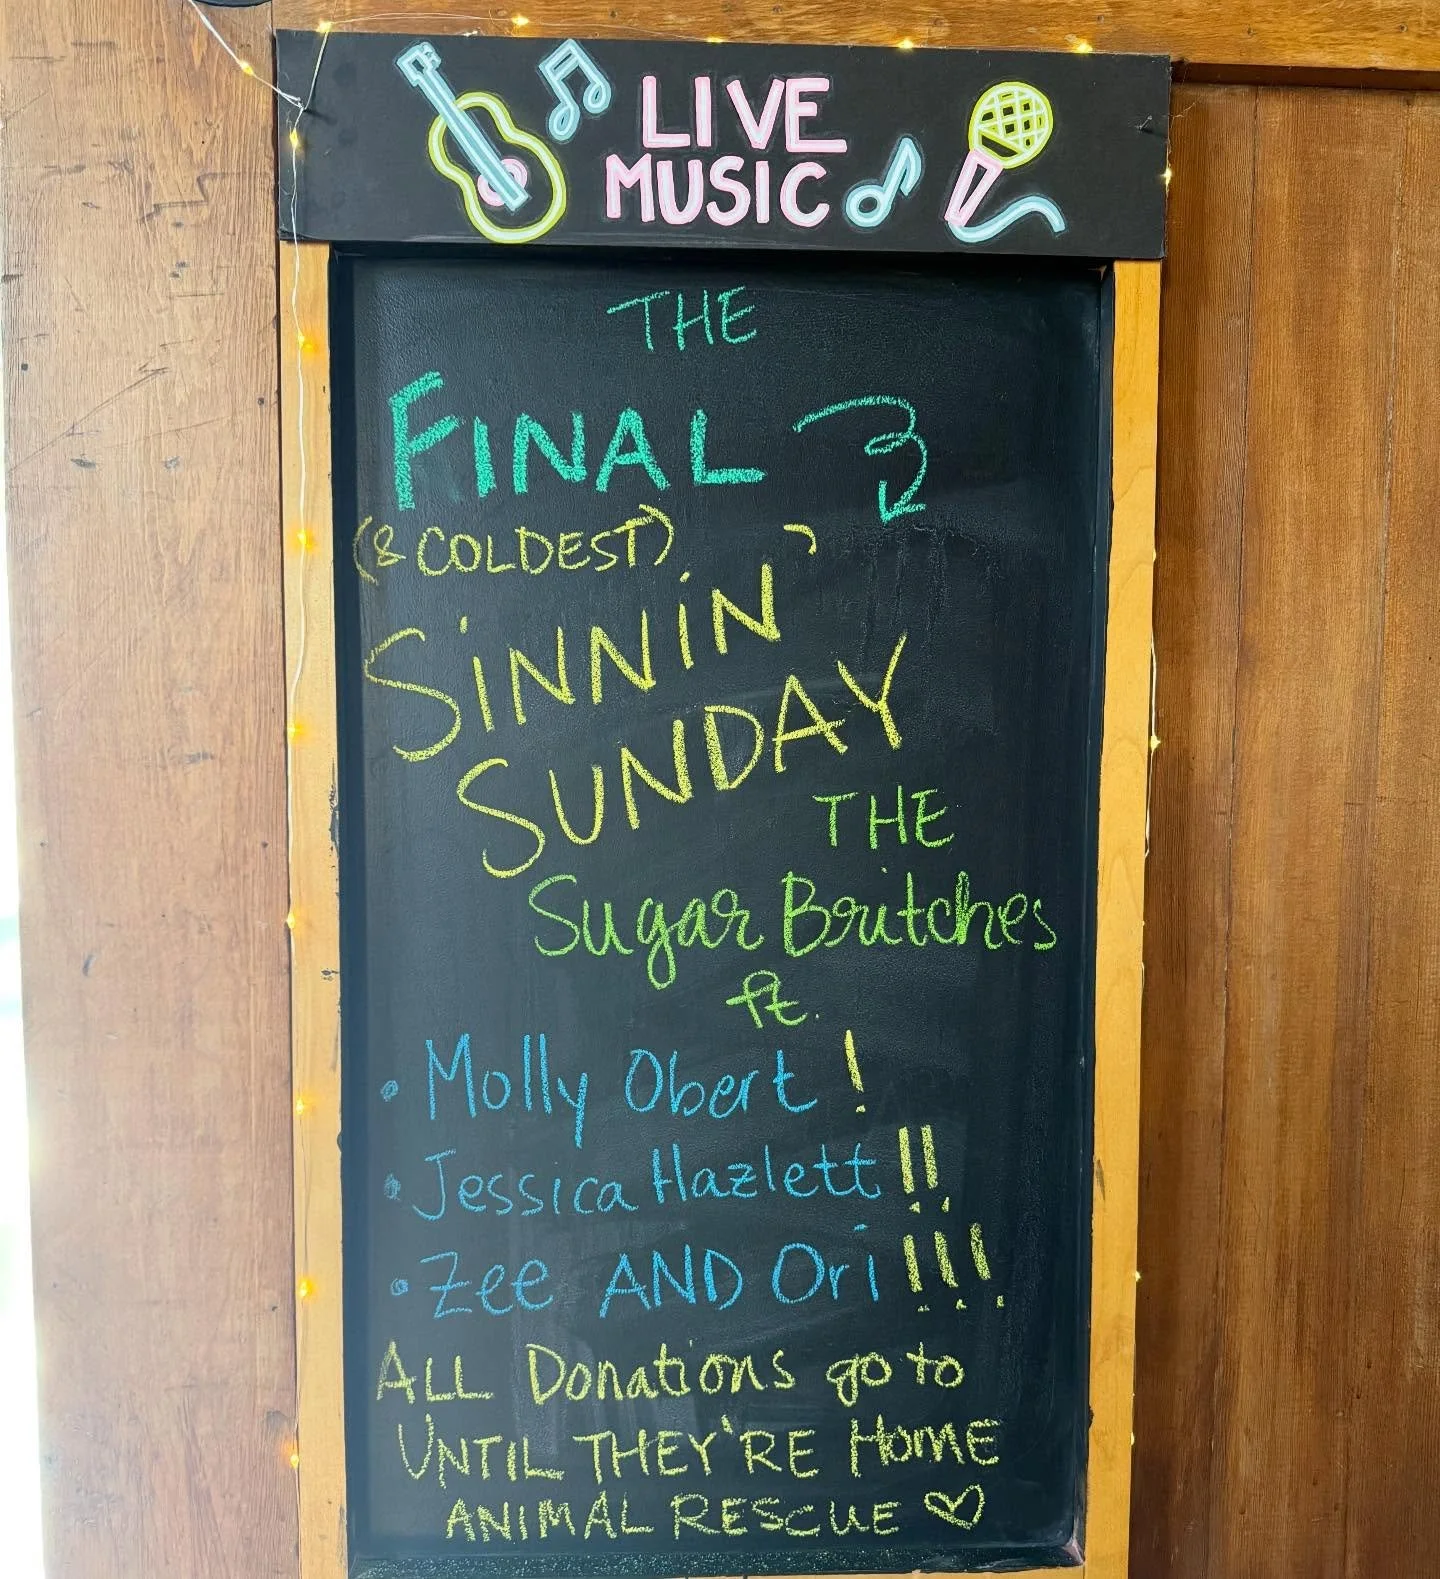 LIVE
MUSIC
THE
FINAL
(& COLDEST)
SiNNiN'
SUNDAY
THE
Sugar Britches
ft.
• Molly Obert !
• Jessica Hazlett !!
• Zee AND Ori !!!
ALL Donations go to
UNTIL THEY'RE HOME
ANIMAL RESCUE ♡